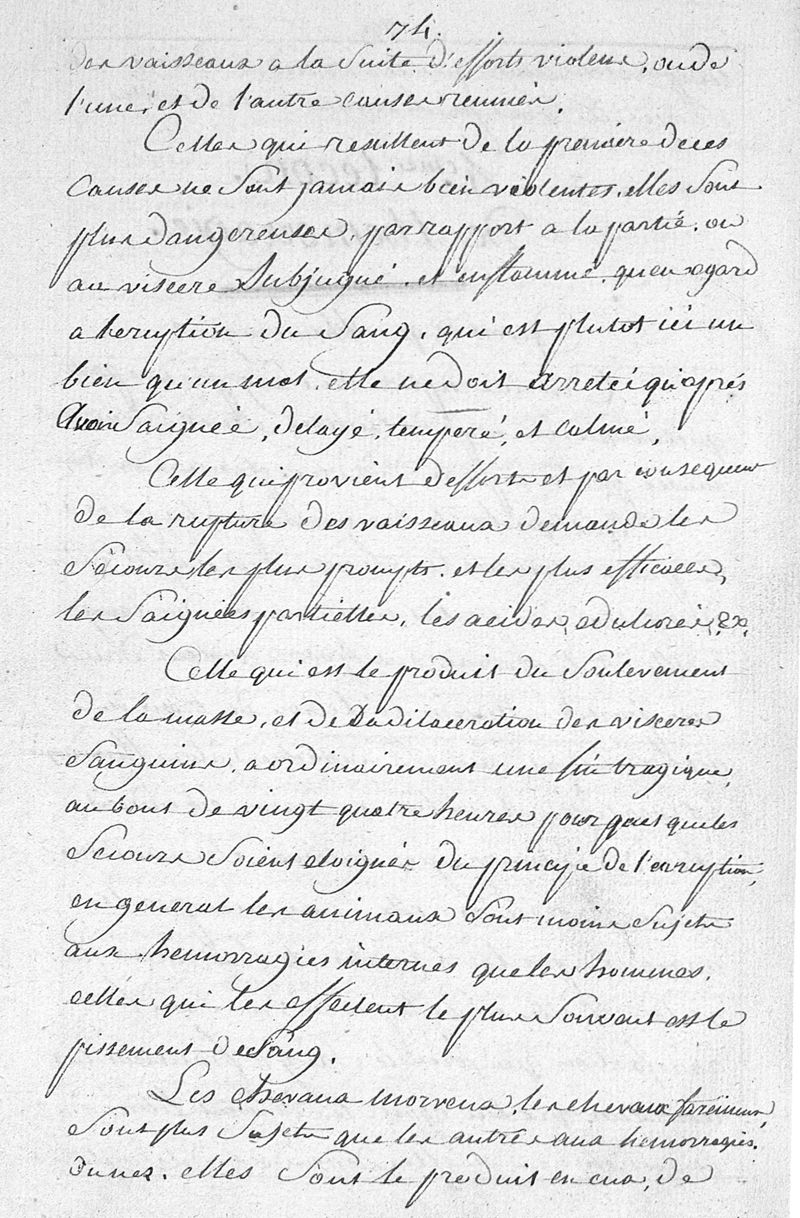 74.
des vaisseaux a la Suite d'efforts violens, ou de
l'une, et de l'autre causes reunies.
Celles qui resultent de la premiere de ces
causes ne Sont jamais bien violentes, elles Sont
plus dangereuses, par rapport a la partie, ou
au viscere Subjugué, et enflammé, qu'eu egard
a leruption du Sang, qui est plutot ici un
bien qu'un mal, elle ne doit arreteé qu'aprés
Avoir Saigneé, delayé, temperé, et calmé,
Celle qui provient d'efforts et par consequent
de la rupture des vaisseaux demande les
Sécours les plus prompts, et les plus efficaces,
les Saignées partielles, les acides, edulcorés, &x.
Celle qui est le produit du Soulevement
de la masse, et de La dilaceration des visceres
Sanguins, a ordinairement une fin tragique,
au bout de vingt quatre heures pour que
Secours Soient eloignés du principe de l'erruption,
en general les animaux Sont moins Sujets
aux hemorragies internes que les hommes,
celles qui les affectent le plus Souvent est le
pissement de Sang.
Les chevaux morveux, les chevaux farcineux,
Sont plus Sujets que les autres aux hemorragies.
du nez, elles Sont le produit en eux, de